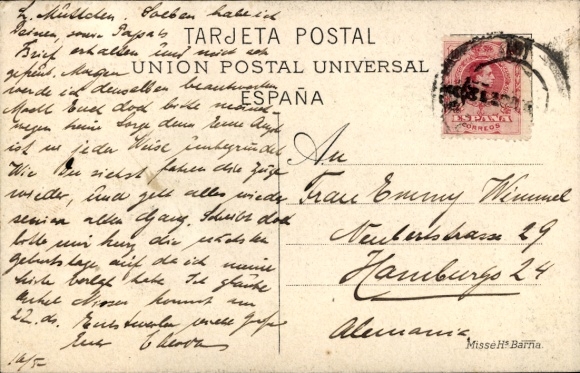 L. Muttchen. Soeben habe ich
Deinen, sowie Papas
Brief erhalten und mich
gefreut. Morgen
werde ich denselben beantworten
Macht Euch doch bitte
wegen keine Sorge denn Eure Angst
ist in jeder Weise unbegründet
Wie Du siehst fahren die Züge
wieder, und geht alles wieder
seinen alten Gang. Schreibt doch
bitte mir kurz die nächsten
Geburtstage, auf da ich meine
Liste verlegt habe. Ich glaube
Onkel Moses kommt am
22. ds.
Euer
14/5
TARJETA POSTAL
UNION POSTAL UNIVERSAL
ESPAÑA
ESPAÑA
CORREOS
An
Frau Emmy Wimmel
Neubertstrasse 29
Hamburg 24
Alemania
Missé Hs Barna.